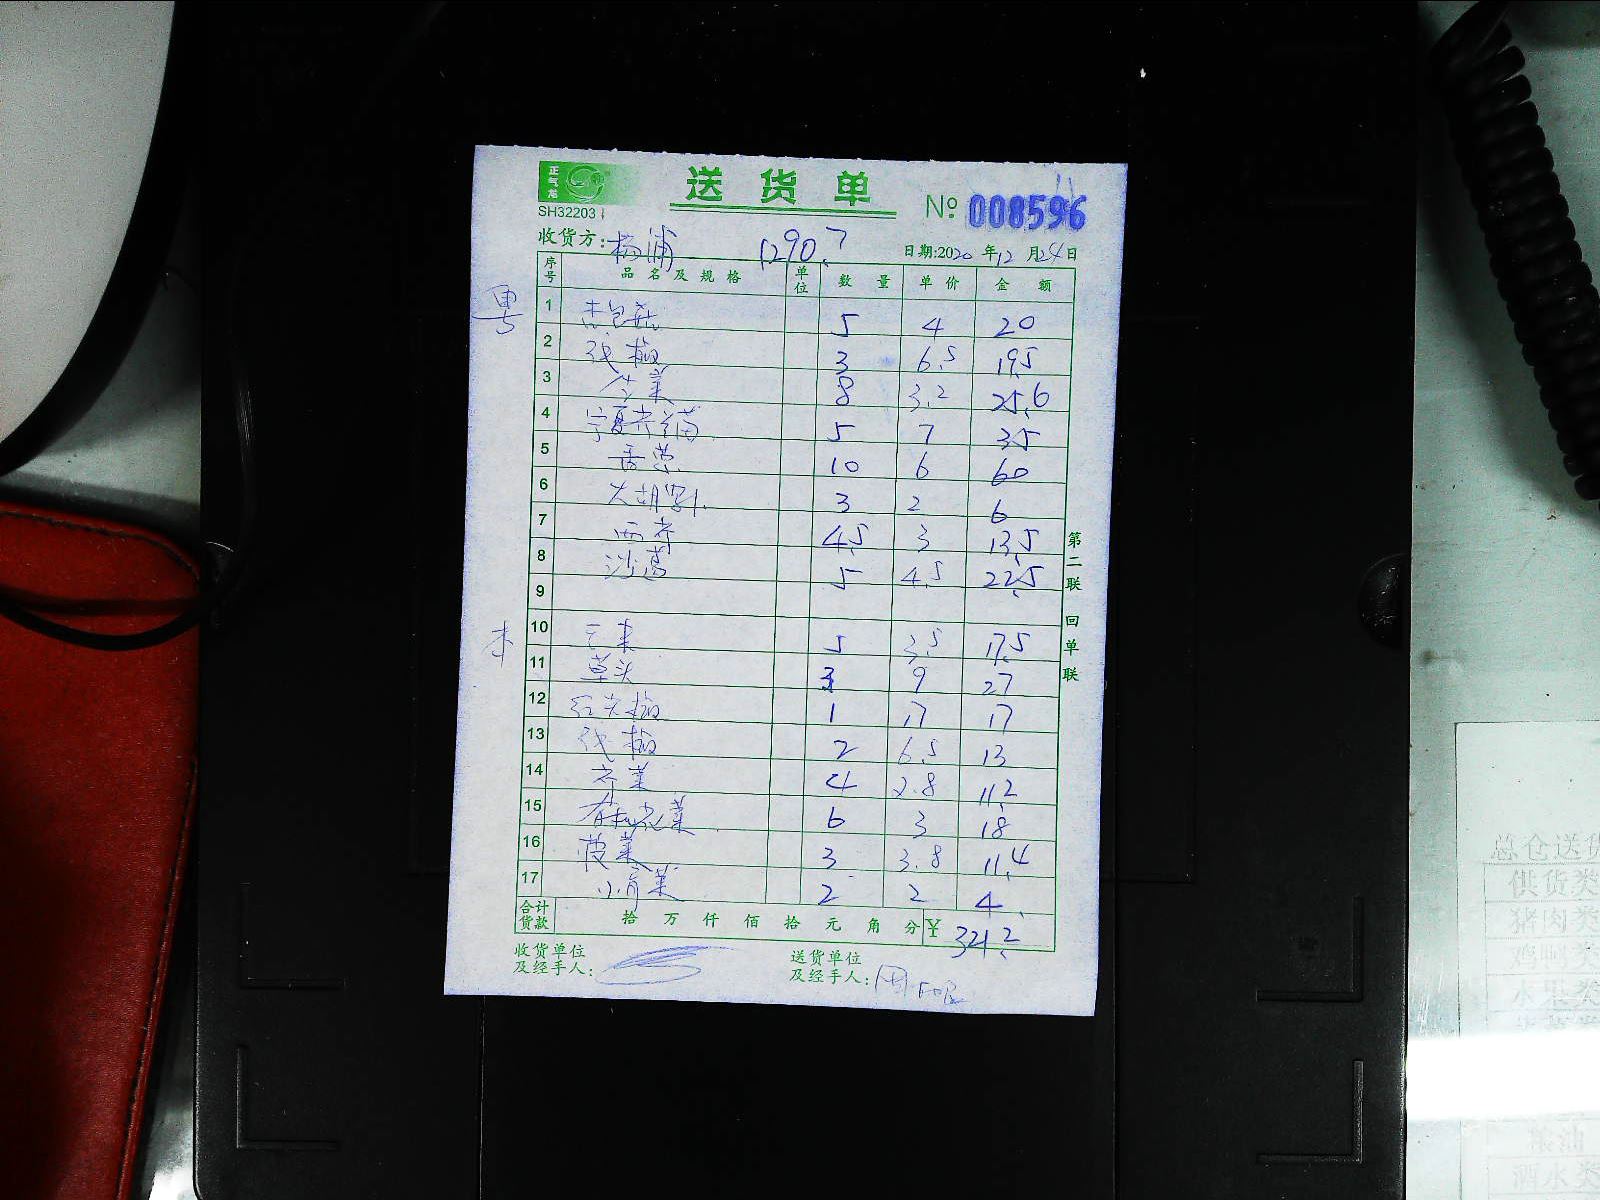 正气龙
送货单
SH32203
№ 008596
收货方: 杨浦 1290.7 日期:2020 年 12 月 24 日
序号 品名及规格 单位 数量 单价 金额
粤
1 杏鲍菇 5 4 20
2 线椒 3 6.5 19.5
3 生菜 8 3.2 25.6
4 宁夏菜苗 5 7 35
5 香葱 10 6 60
6 大胡萝卜 3 2 6
7 西芹 4.5 3 13.5
8 沙葛 5 4.5 22.5
9
本
10 3.5 17.5
11 草头 3 9 27
12 红尖椒 1 17 17
13 线椒 2 6.5 13
14 菜 4 2.8 11.2
15 有机花菜 6 3 18
16 菠菜 3 3.8 11.4
17 小青菜 2 2 4
合计货款 拾 万 仟 佰 拾 元 角 分 ¥ 321.2
收货单位及经手人:
送货单位及经手人: 周
第二联 回单联
总仓送货
供货类
猪肉类
鸡
水果类
粮油
酒水类